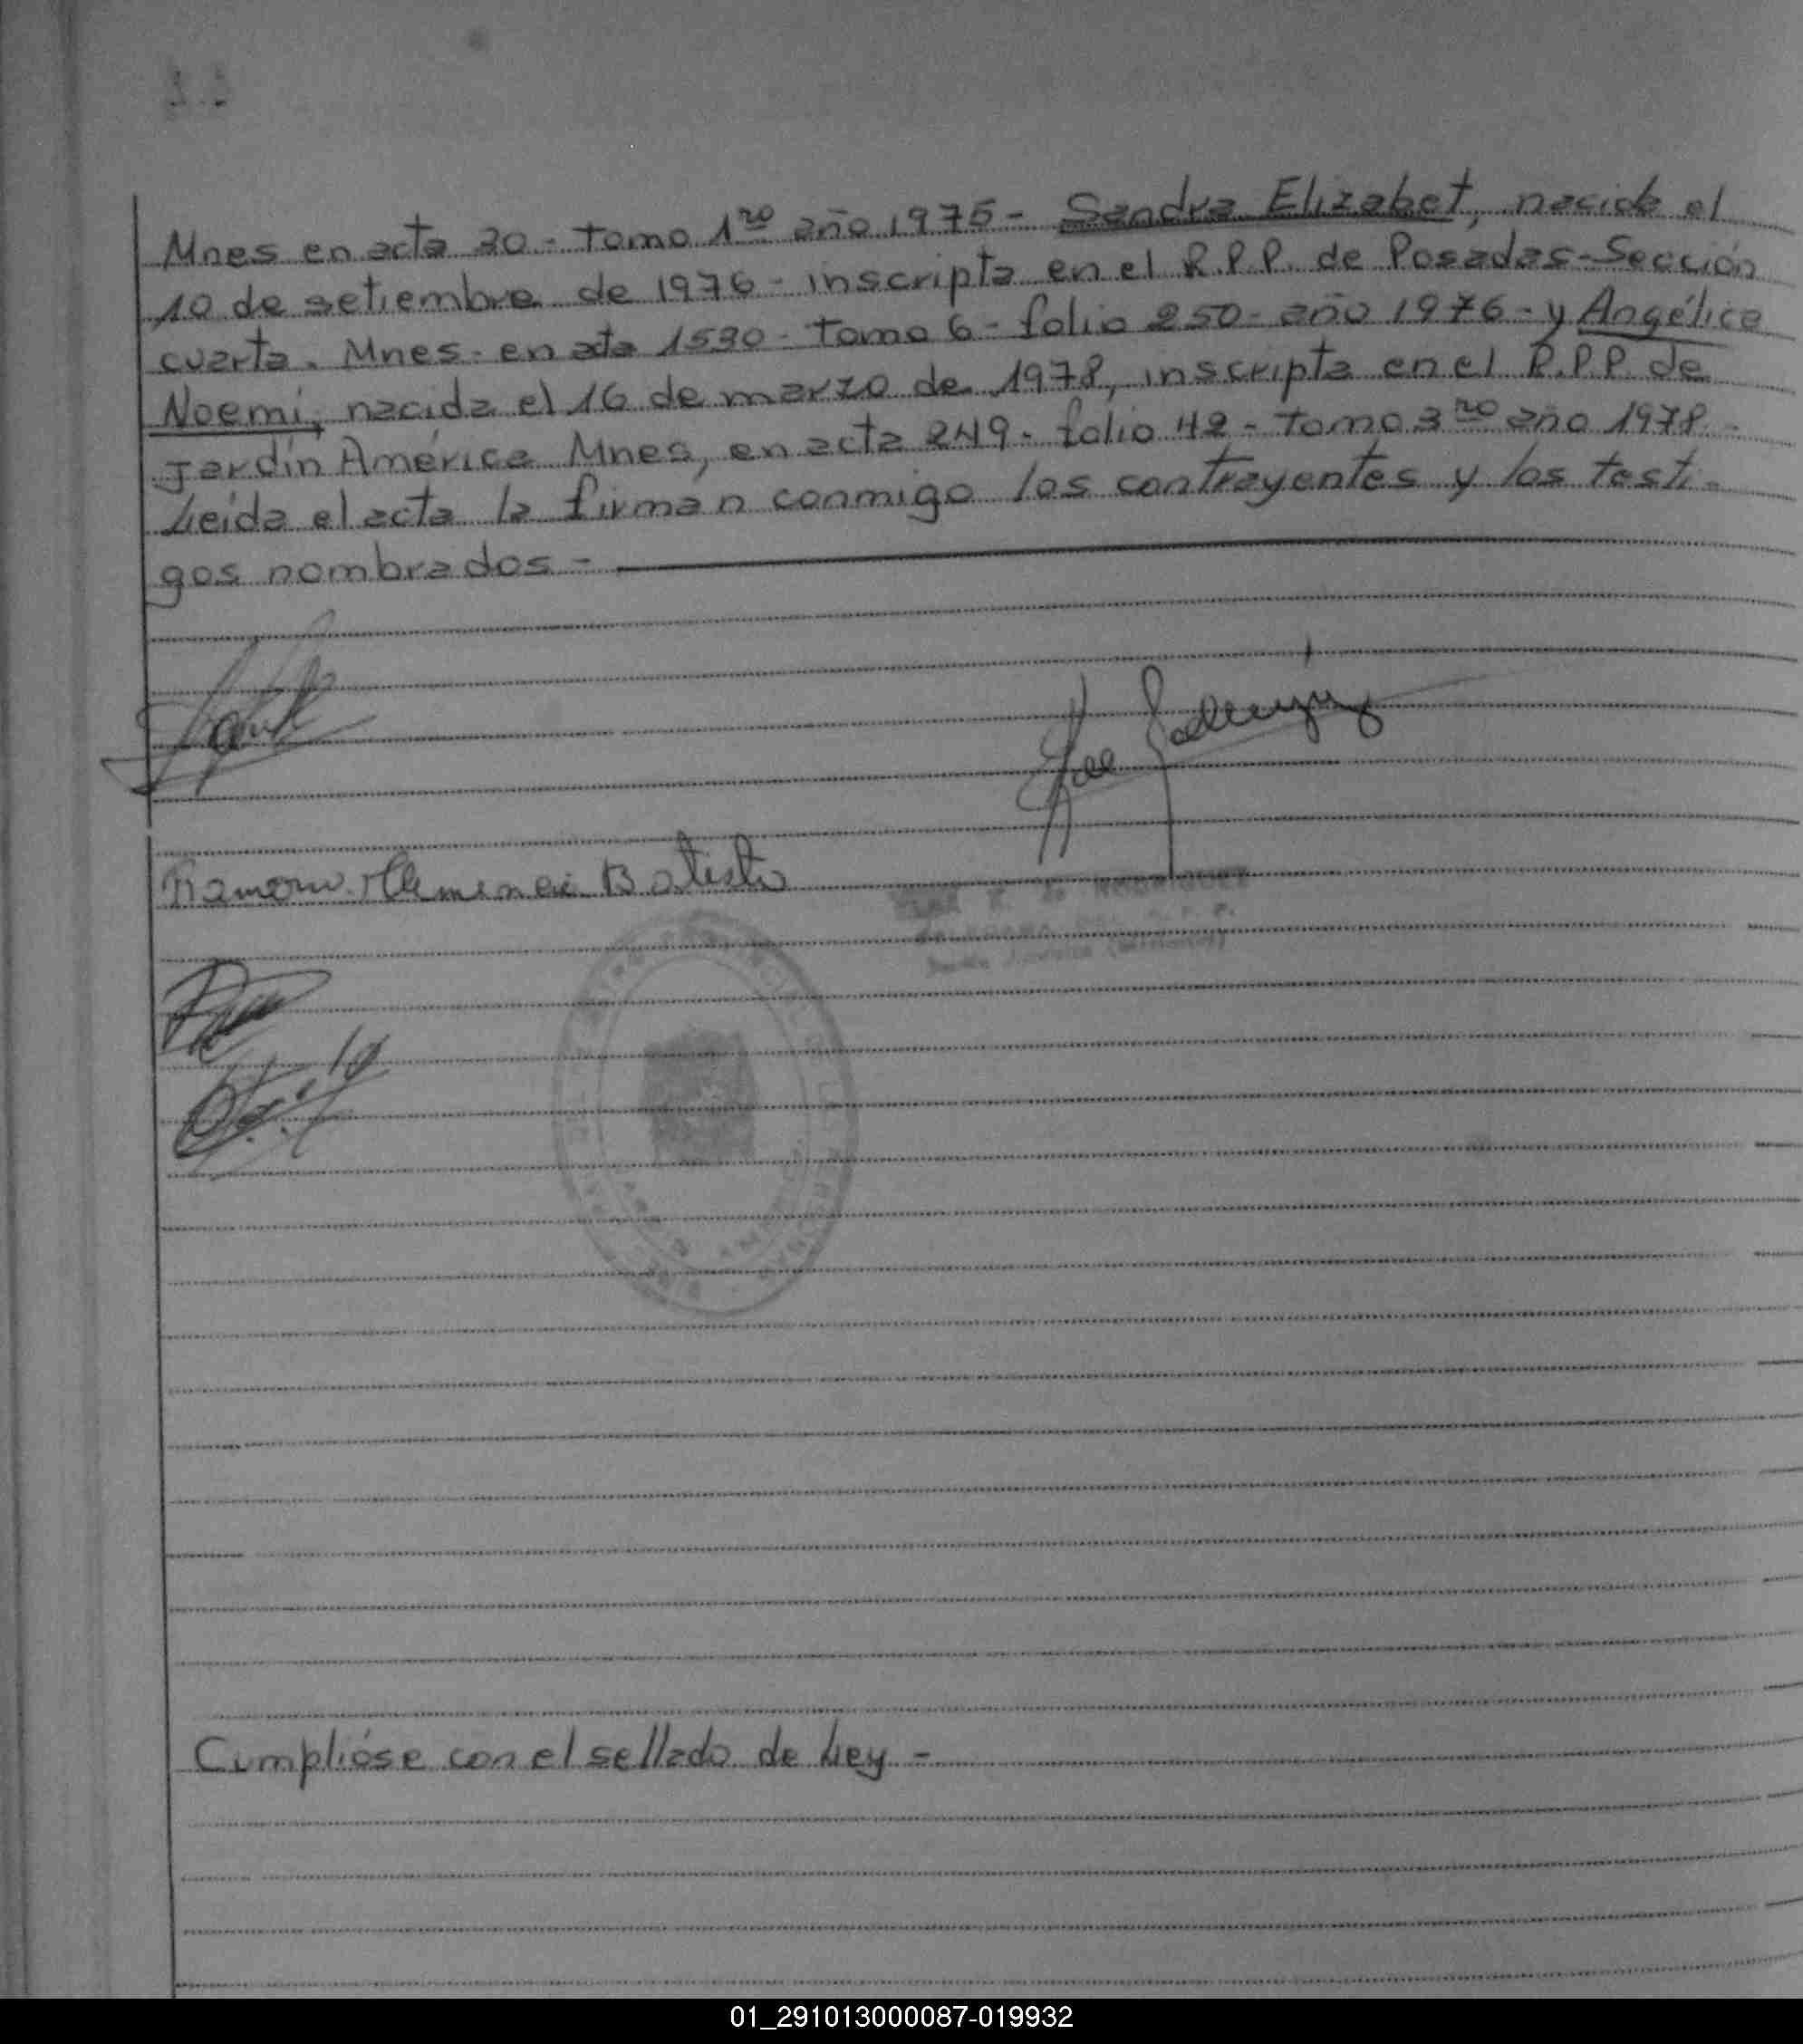 Mnes en acta 30 - tomo 1ro año 1975 - Sandra Elizabet, nacida el
10 de setiembre de 1976 - inscripta en el R.P.P. de Posadas - Sección
cuarta. Mnes - en acta 1530 - tomo 6 - folio 250 - año 1976 - y Angélica
Noemí, nacida el 16 de marzo de 1978, inscripta en el R.P.P. de
Jardín América Mnes, en acta 249 - folio 42 - tomo 3ro año 1978 -
Leída el acta la firman conmigo los contrayentes y los testi-
gos nombrados -
Batista
RODRIGUEZ
Cumplióse con el sellado de Ley -
01_291013000087-019932